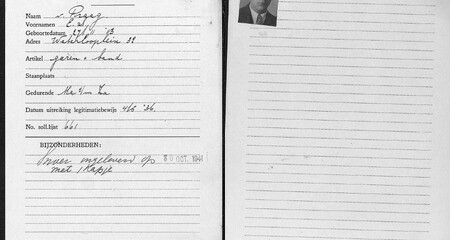 Naam v. Praag
Voornamen E. S.
Geboortedatum 17/11 '93
Adres Waterlooplein 22
Artikel garen & band
Staanplaats
Gedurende Ma t/m Za
Datum uitreiking legitimatiebewijs 4/6 '26.
No. soll.lijst 661
BIJZONDERHEDEN:
ingeleverd op 30 OCT. 1941
met kapje